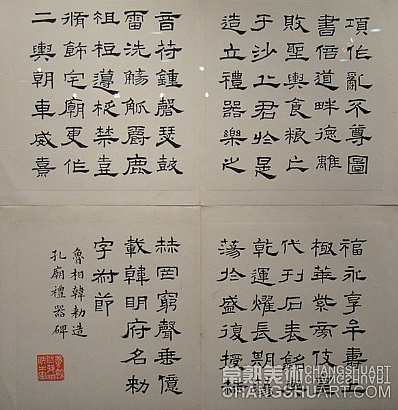 項作亂不尊圖
書倍道畔德離
敗聖輿食糧亡
于沙丘君於是
造立禮器樂之
音符鍾磬瑟鼓
雷洗觴觚爵鹿
柤梪籩柉禁壺
脩飾宅廟更作
二輿朝車威熹
福永享牟壽上
極華紫旁伎皇
代刊石表銘與
乾運耀長期蕩
蕩於盛復授赫
赫罔窮聲垂億
載韓明府名勑
字叔節
魯相韓勑造
孔廟禮器碑
常熟美術 CHANGSHUART